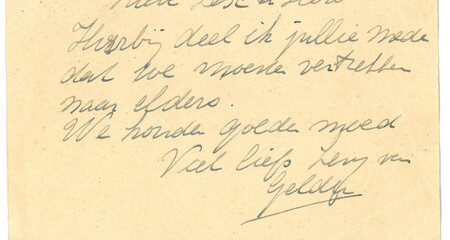 Hierbij deel ik jullie mede
dat we moeten vertrekken
naar elders.
We houden goeden moed
Veel liefs Leny van
Gelder